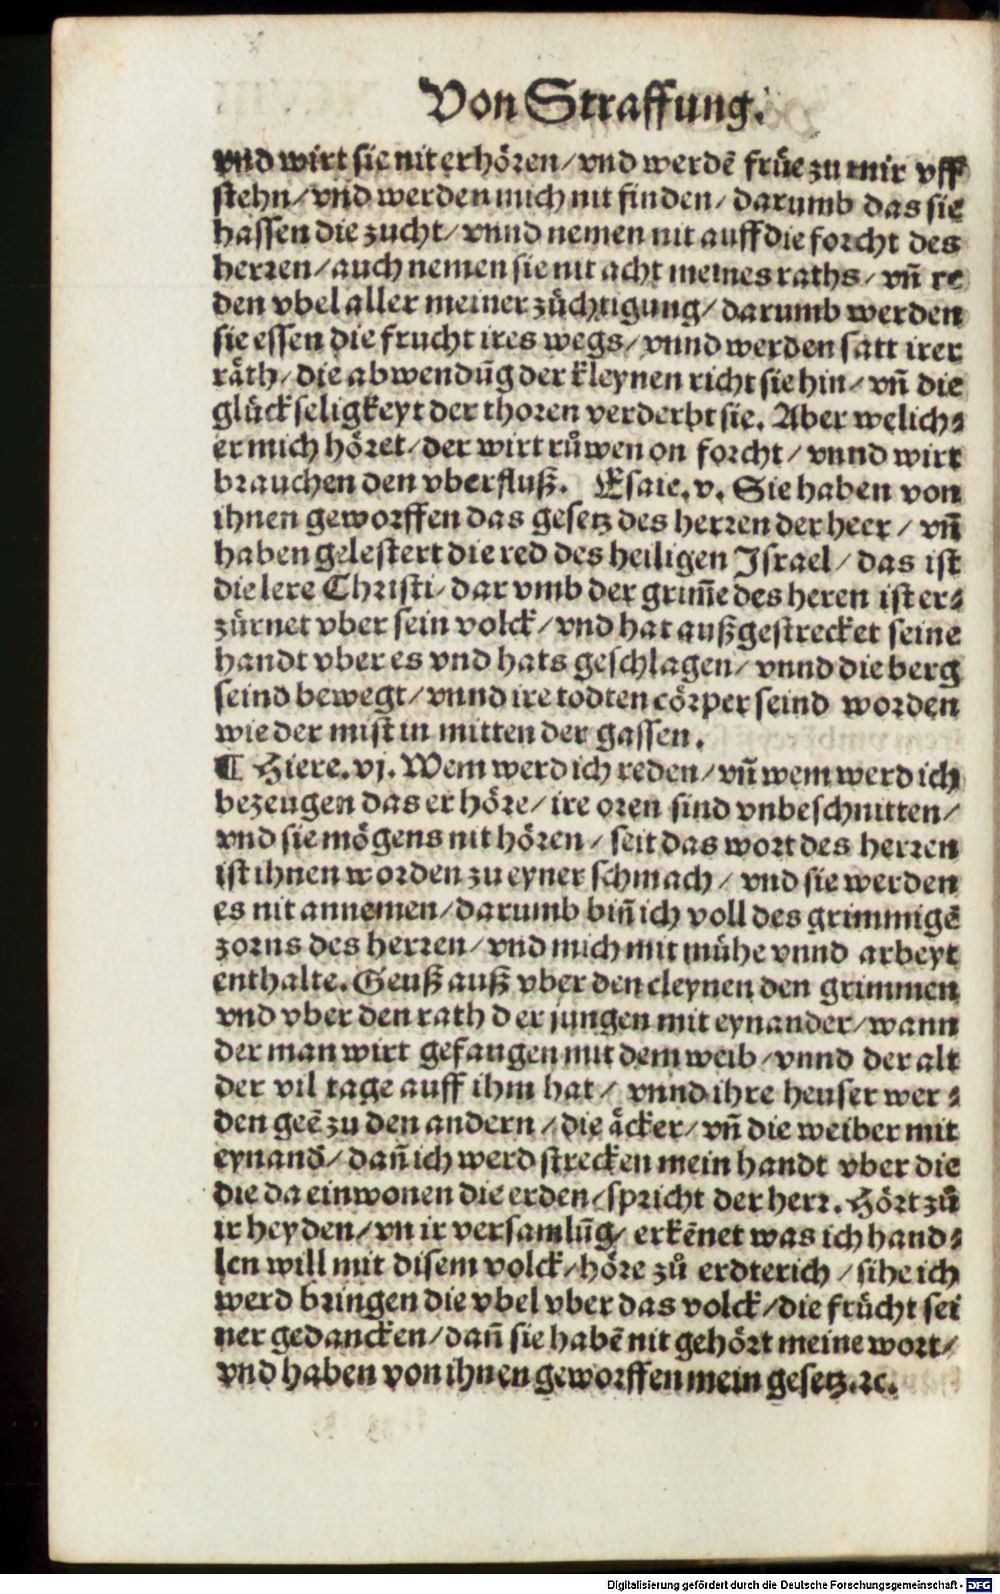 Von Straffung.
vnd wirt sie nit erhören/ vnd werdē früe zu mir vff
stehn/ vnd werden mich nit finden/ darumb das sie
hassen die zucht/ vnnd nemen nit auff die forcht des
herren/ auch nemen sie nit acht meines raths/ vn̄ re
den vbel aller meiner züchtigung/ darumb werden
sie essen die frucht ires wegs/ vnnd werden satt irer
räth/ die abwendūg der kleynen richt sie hin/ vn̄ die
glückseligkeyt der thoren verderbt sie. Aber welich⸗
er mich höret/ der wirt růwen on forcht/ vnnd wirt
brauchen den vberfluß. Esaie. v. Sie haben von
ihnen geworffen das gesetz des herren der heer/ vn̄
haben gelestert die red des heiligen Israel/ das ist
die lere Christi/ dar vmb der grim̄e des heren ist er⸗
zürnet vber sein volck/ vnd hat außgestrecket seine
handt vber es vnd hats geschlagen/ vnnd die berg
seind bewegt/ vnnd ire todten cörper seind worden
wie der mist in mitten der gassen.
¶ Hiere. vj. Wem werd ich reden/ vn̄ wem werd ich
bezeugen das er höre/ ire oren sind vnbeschnitten/
vnd sie mögens nit hören/ seit das wort des herren
ist ihnen worden zu eyner schmach/ vnd sie werden
es nit annemen/ darumb bin̄ ich voll des grimmigē
zorns des herren/ vnd mich mit mühe vnnd arbeyt
enthalte. Geuß auß vber den cleynen den grimmen
vnd vber den rath der jungen mit eynander/ wann
der man wirt gefangen mit dem weib/ vnnd der alt
der vil tage auff ihm hat/ vnnd ihre heuser wer⸗
den geē zu den andern/ die äcker/ vn̄ die weiber mit
eynand̄/ dan̄ ich werd strecken mein handt vber die
die da einwonen die erden/ spricht der herr. Hört zů
ir heyden/ vn ir versamlūg/ erkēnet was ich hand⸗
len will mit disem volck/ höre zů erdterich/ sihe ich
werd bringen die vbel vber das volck/ die frücht sei
ner gedancken/ dan̄ sie habē nit gehört meine wort/
vnd haben von ihnen geworffen mein gesetz. ꝛc.
Digitalisierung gefördert durch die Deutsche Forschungsgemeinschaft - DFG